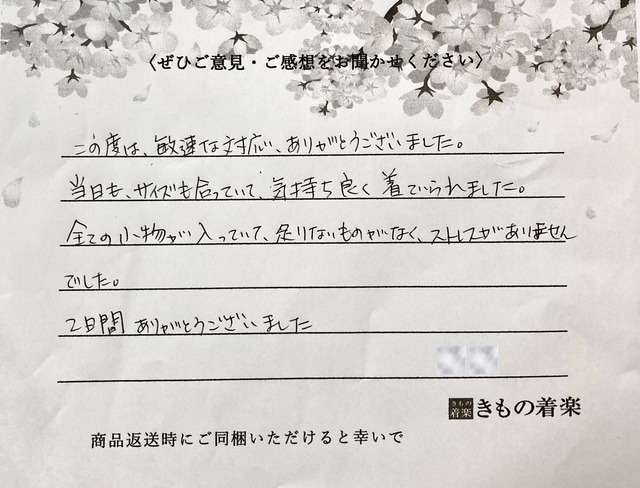 〈ぜひご意見・ご感想をお聞かせください〉
この度は、敏速な対応、ありがとうございました。
当日も、サイズも合っていて、気持ち良く着ていられました。
全ての小物が入っていて、足りないものがなく、ストレスがありません
でした。
2日間 ありがとうございました
きもの
着楽
きもの着楽
商品返送時にご同梱いただけると幸いで